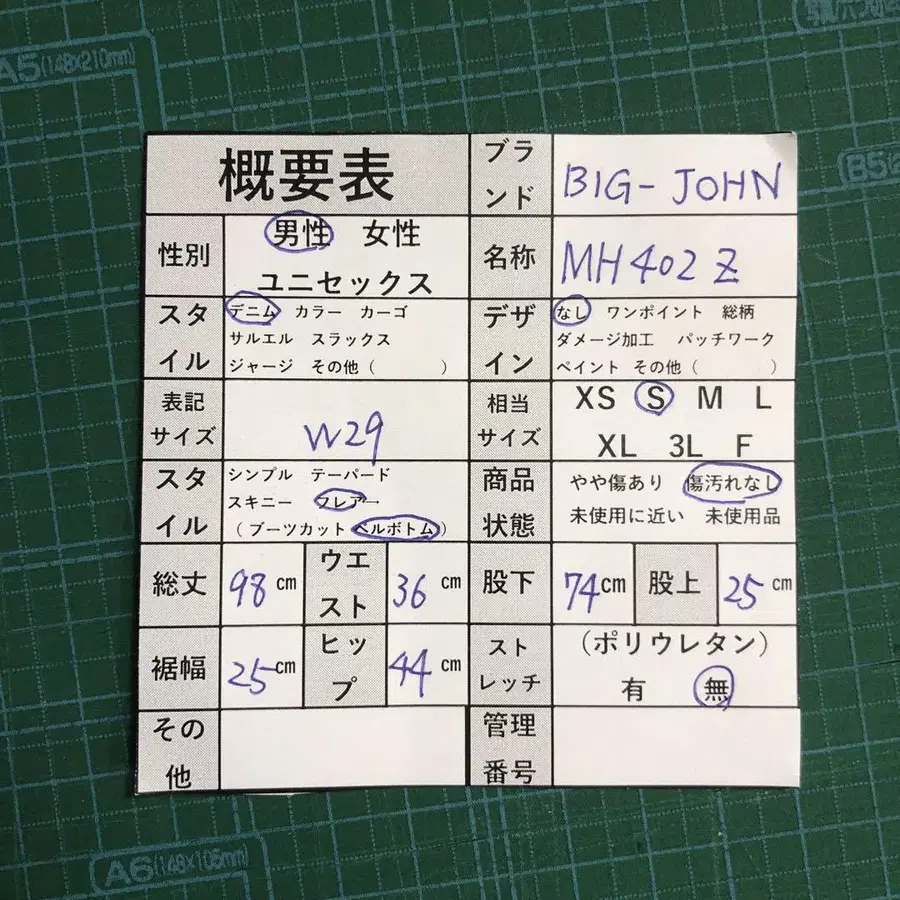 A5(148×210mm)
概要表
ブランド
BIG-JOHN
性別
男性 女性
ユニセックス
名称
MH402Z
スタイル
デニム カラー カーゴ
サルエル スラックス
ジャージ その他( )
デザイン
なし ワンポイント 総柄
ダメージ加工 パッチワーク
ペイント その他( )
表記
サイズ
W29
相当
サイズ
XS S M L
XL 3L F
スタイル
シンプル テーパード
スキニー フレア→
(ブーツカット ベルボトム)
商品
状態
やや傷あり 傷汚れなし
未使用に近い 未使用品
総丈
98cm
ウエスト
36cm
股下
74cm
股上
25cm
裾幅
25cm
ヒップ
44cm
ストレッチ
(ポリウレタン)
有 無
その他
管理
番号
A6(148×105mm)